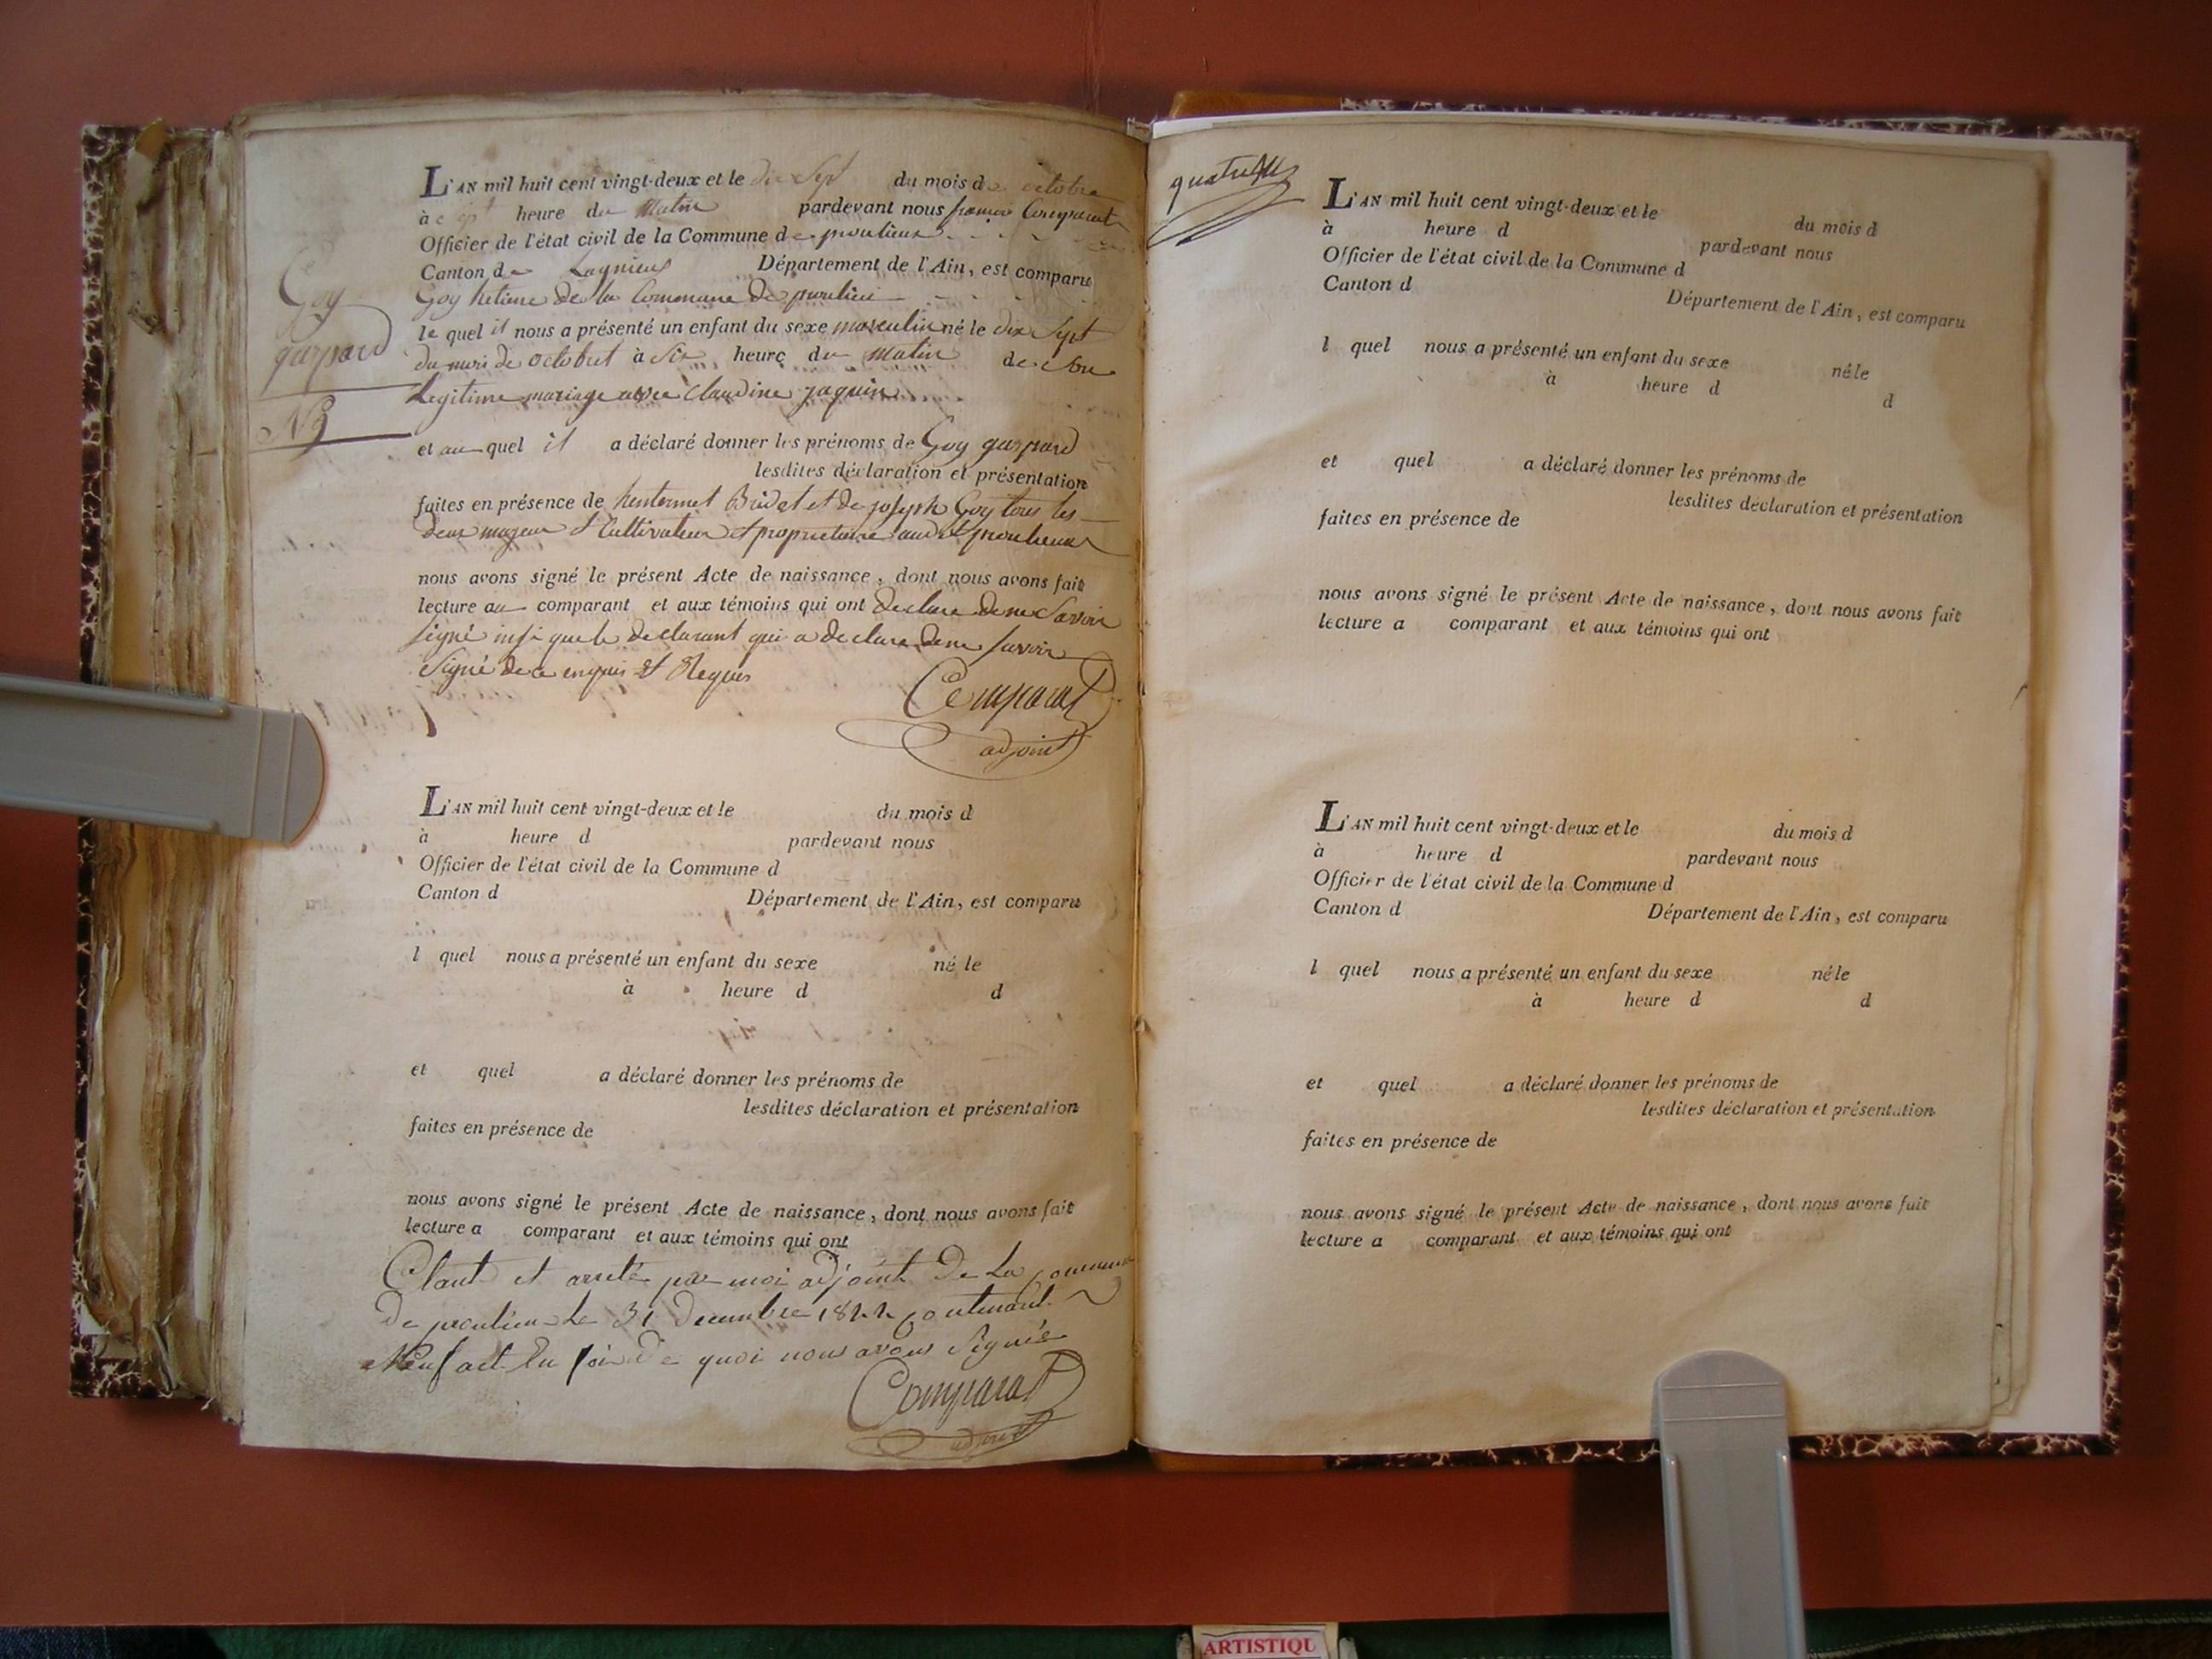 L'AN mil huit cent vingt-deux et le dix Sept du mois de octobre
à sept heure du Matin pardevant nous Comparat
Officier de l'état civil de la Commune de proulieux
Canton de Lagnieux Département de l'Ain, est comparu
Goy hetiene de la Commune de proulieu
le quel il nous a présenté un enfant du sexe masculin né le dix Sept
du mois de octobret à Six heure du Matin de Son
Legitime mariage avec Claudine jaquin
et au quel il a déclaré donner les prénoms de Goy gaspard
lesdites déclaration et présentation
faites en présence de Bridet et de joseph Goy tous les
deux majeur et Cultivateur et proprietaire audit proulieux
nous avons signé le présent Acte de naissance, dont nous avons fait
lecture au comparant et aux témoins qui ont declare de ne Savoir
signé insi que le declarant qui a declare de ne savoir
Signé de ce enquis et Requis
Comparat
adjoint
Goy
gaspard
L'AN mil huit cent vingt-deux et le du mois d
à heure d pardevant nous
Officier de l'état civil de la Commune d
Canton d Département de l'Ain, est comparu
l quel nous a présenté un enfant du sexe né le
à heure d d
et quel a déclaré donner les prénoms de
lesdites déclaration et présentation
faites en présence de
nous avons signé le présent Acte de naissance, dont nous avons fait
lecture a comparant et aux témoins qui ont
Claut et arreté par moi adjoint De La commune
De proulieu Le 31 Decembre 1822 contenant
Neuf act En foi De quoi nous avons Signé
Comparat
adjoint
L'AN mil huit cent vingt-deux et le du mois d
à heure d pardevant nous
Officier de l'état civil de la Commune d
Canton d Département de l'Ain, est comparu
l quel nous a présenté un enfant du sexe né le
à heure d d
et quel a déclaré donner les prénoms de
lesdites déclaration et présentation
faites en présence de
nous avons signé le présent Acte de naissance, dont nous avons fait
lecture a comparant et aux témoins qui ont
L'AN mil huit cent vingt-deux et le du mois d
à heure d pardevant nous
Officier de l'état civil de la Commune d
Canton d Département de l'Ain, est comparu
l quel nous a présenté un enfant du sexe né le
à heure d d
et quel a déclaré donner les prénoms de
lesdites déclaration et présentation
faites en présence de
nous avons signé le présent Acte de naissance, dont nous avons fait
lecture a comparant et aux témoins qui ont
ARTISTIQU